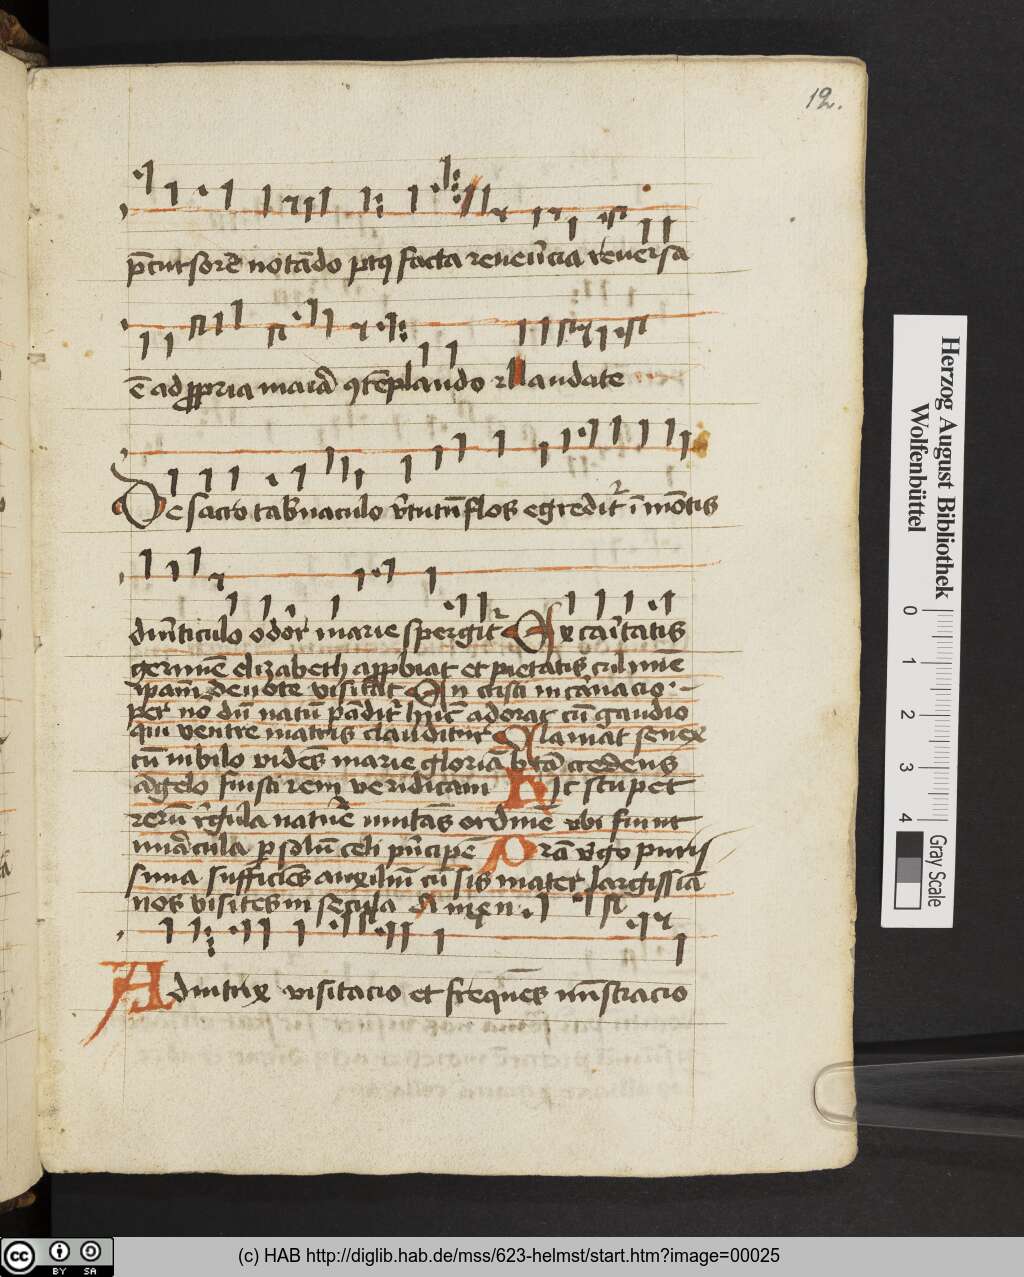 12.
p̄cursorē notādo ptꝯ facta reuerēcia reuersa
ē ad ꝓpria maiā ꝯtēplando Laudate
De sacro tab̄naculo v̄tutū flos egredit̄ ī mōtis
diūticulo odor marie spergit̄ Ex caritatis
germinē elizabeth appbiat et pietatis culminē
ipam deuote visitat In cristi incānacio
per nō dū natū pādit̄ hūc adorat cū gaudio
qui ventre matris clauditur Clamat senex
cū iubilo vides marie gloriā b̄tā credens
āgelo fuisti rem veridicam Hic stupet
rerū r̄gula nature mutās ordinē vbi fiunt
mīacula p solū celi p̄ncipē Orā v̄go puris
sima sufficiēs auxiliū cū sis mater largissiā
nos visites in secula Amen
Adiutrix visitacio et freqūes mīstracio
Herzog August Bibliothek
Wolfenbüttel
0 1 2 3 4
Gray Scale
cc BY SA
(c) HAB http://diglib.hab.de/mss/623-helmst/start.htm?image=00025